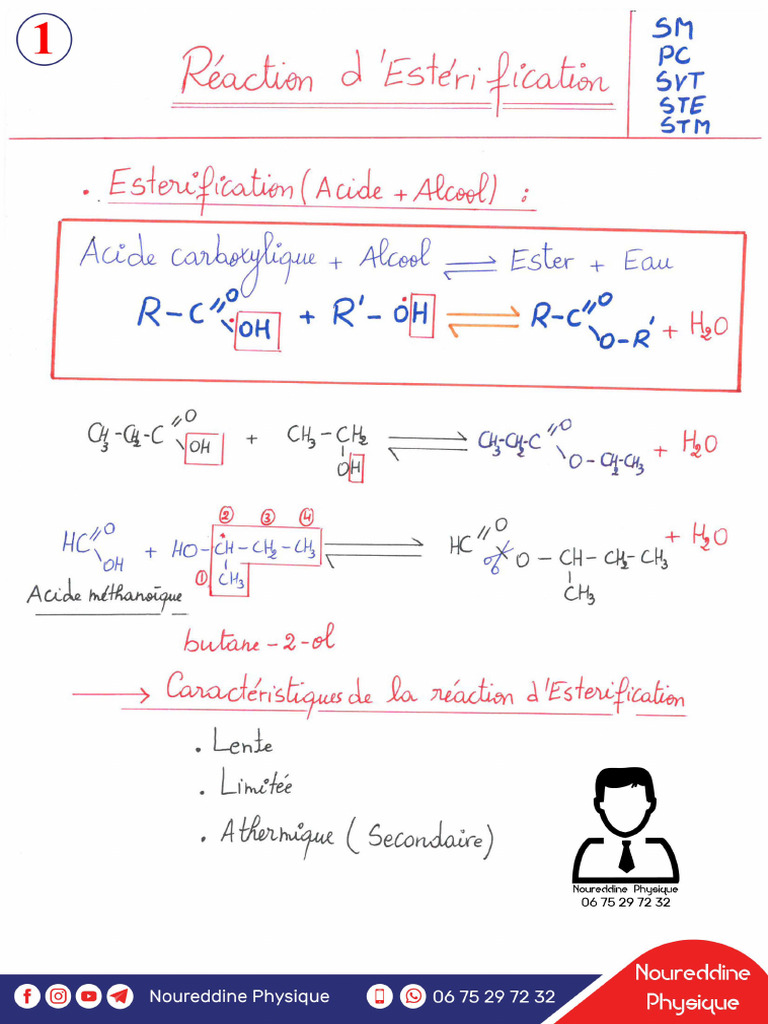 1
Réaction d'Estérification
SM
PC
SVT
STE
STM
. Esterification (Acide + Alcool) :
Acide carboxylique + Alcool ⇌ Ester + Eau
R-C(=O)-OH + R'-OH ⇌ R-C(=O)-O-R' + H₂O
CH₃-CH₂-C(=O)-OH + CH₃-CH₂-OH ⇌ CH₃-CH₂-C(=O)-O-CH₂-CH₃ + H₂O
② ③ ④
HC(=O)-OH + HO-CH(CH₃)-CH₂-CH₃ ⇌ HC(=O)-O-CH(CH₃)-CH₂-CH₃ + H₂O
①
Acide méthanoïque
butane-2-ol
→ Caractéristiques de la réaction d'Esterification
. Lente
. Limitée
. Athermique (Secondaire)
Noureddine Physique
06 75 29 72 32
Noureddine Physique
06 75 29 72 32
Noureddine
Physique